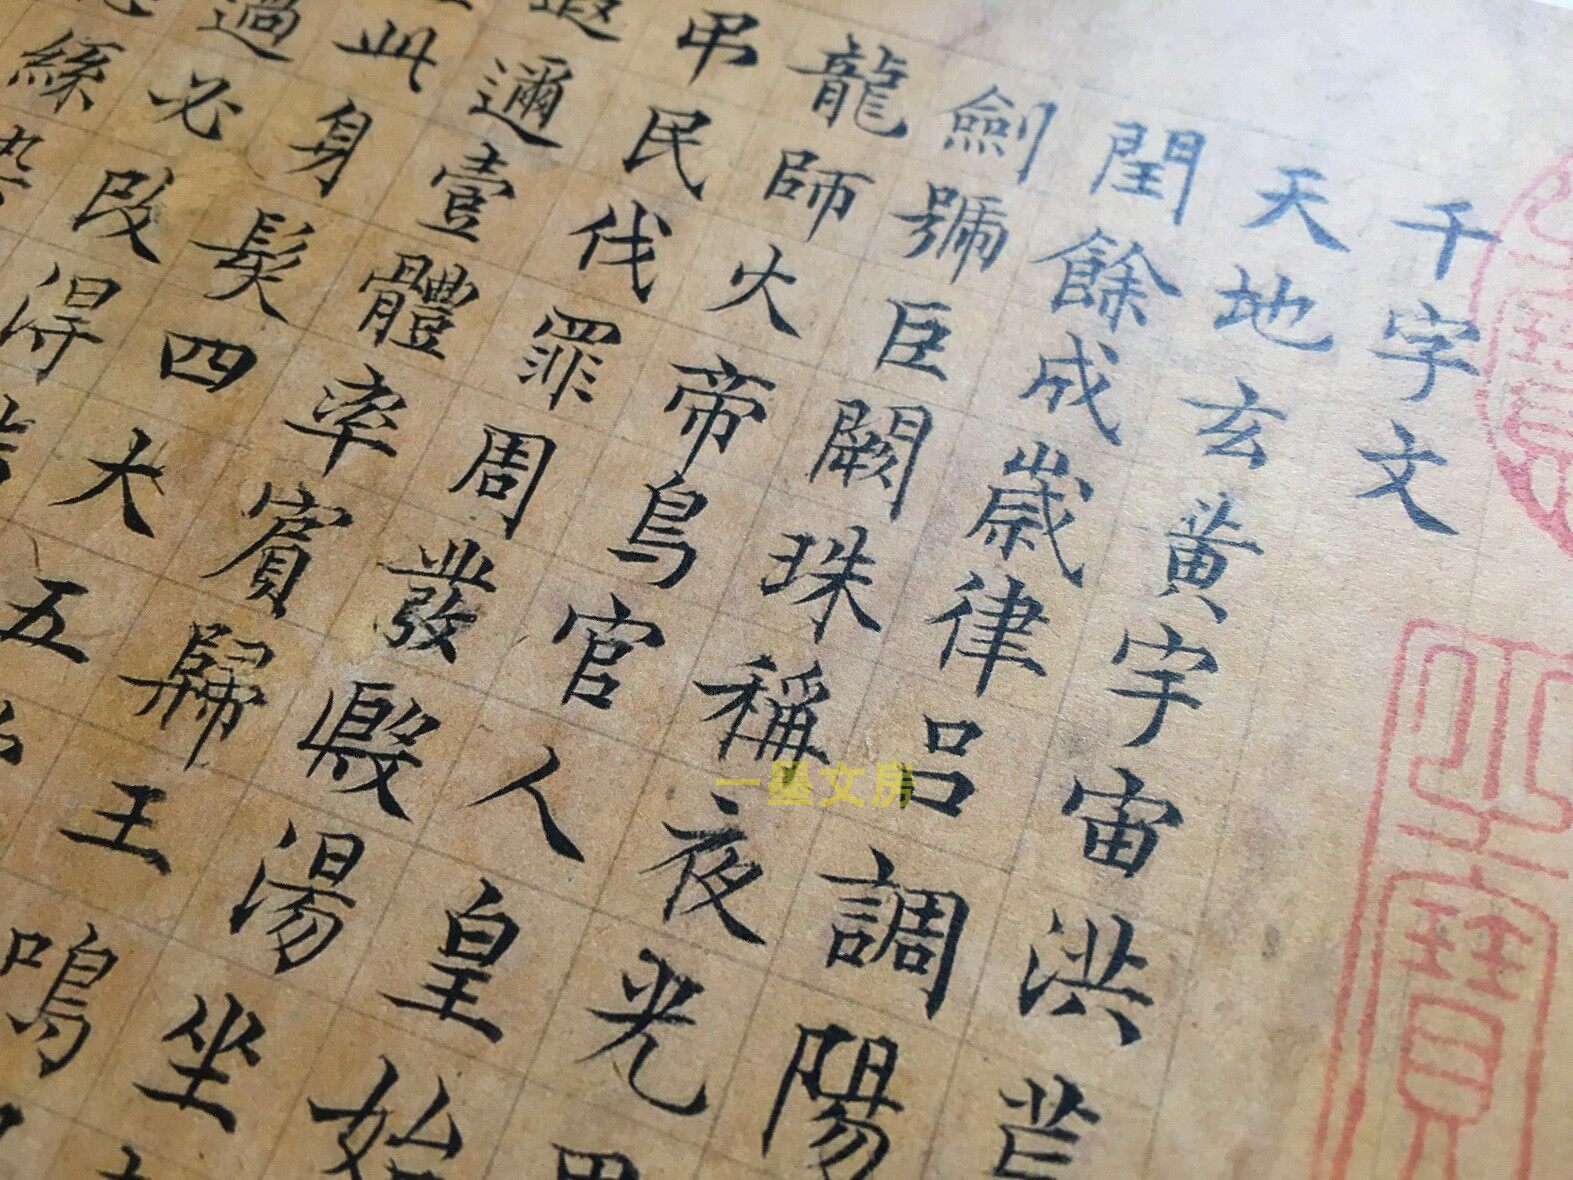 千字文
天地玄黄宇宙洪荒
閏餘成歲律吕調陽
劍號巨闕珠稱夜光
龍師火帝鳥官人皇始
弔民伐罪周發殷湯坐
遐邇壹體率賓歸王鳴
此身髮四大五
過必改得
絲染
一墨文房